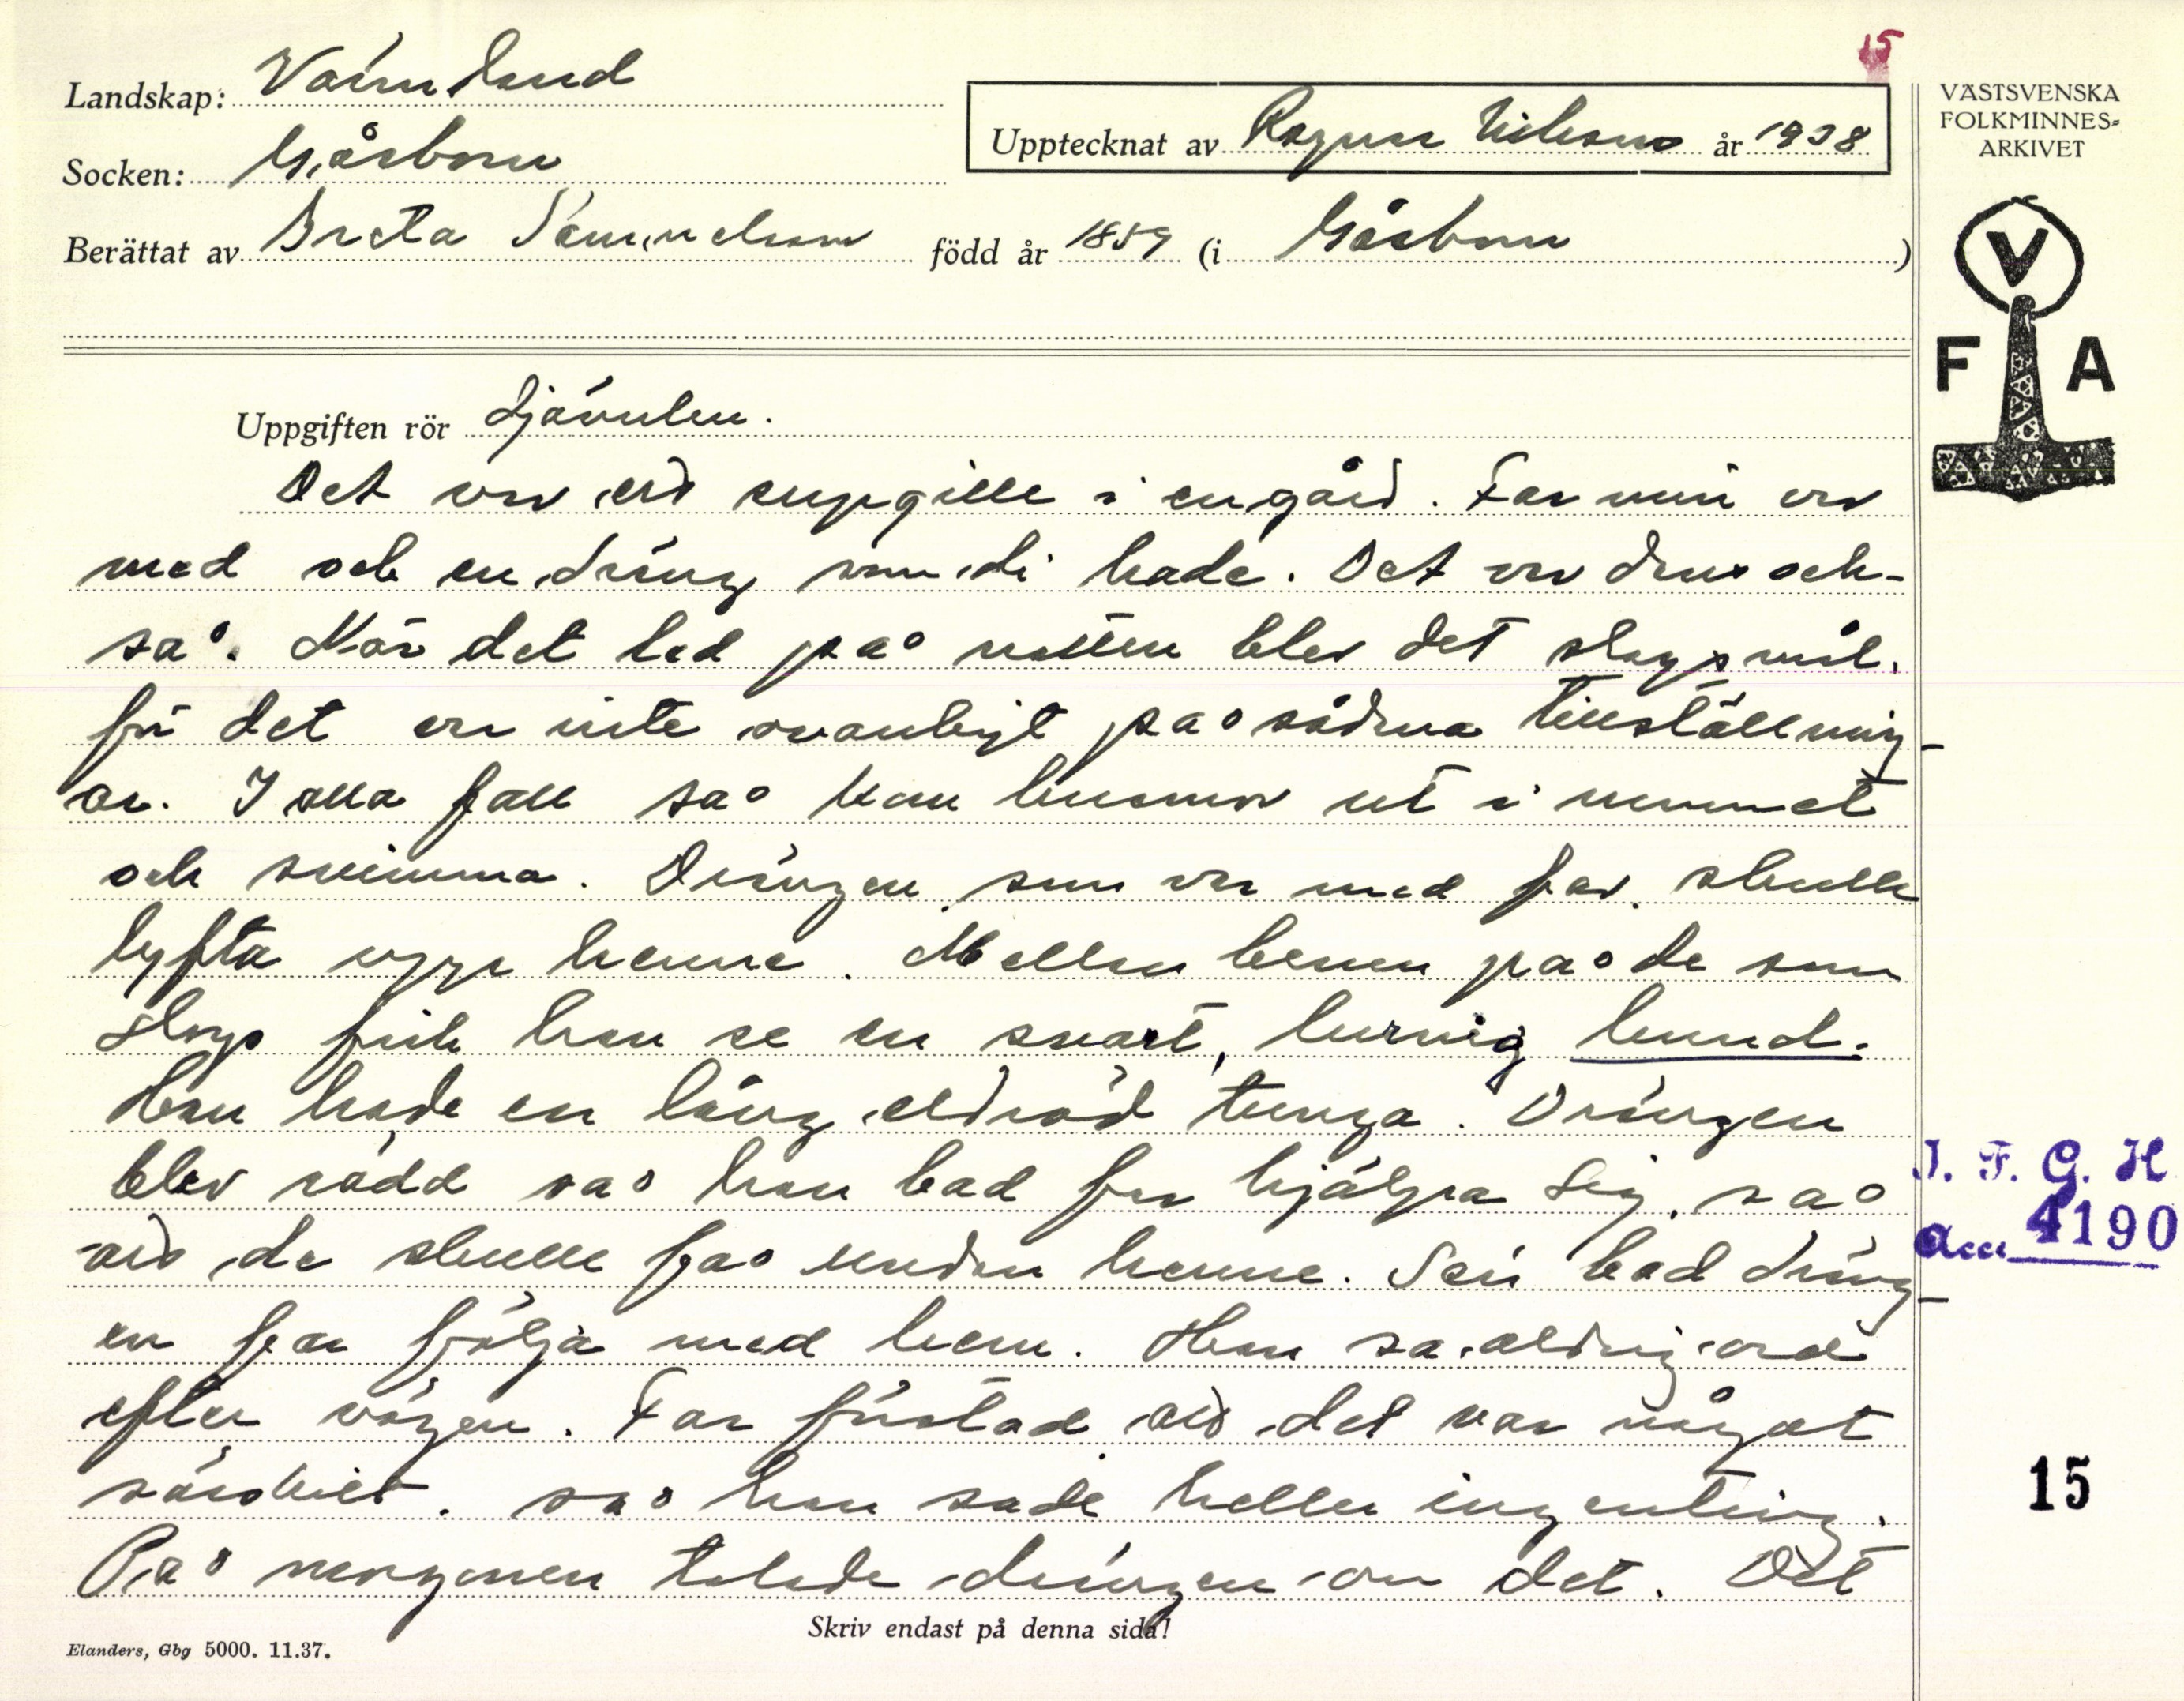 15
Landskap: Värmland
Socken: Gåsborn
Upptecknat av Ragnar Nilsson år 1938
Berättat av Greta Samuelsson född år 1859 (i Gåsborn)
VÄSTSVENSKA
FOLKMINNES-
ARKIVET
V
F A
Uppgiften rör djävulen.
Det var ett supgille i en gård. Far min var
med och en dräng som di hade. Det var dans ock-
så. När det led på natten blev det slagsmål,
för det var inte ovanligt på sådna tillställning-
ar. I alla fall så kom husmor ut i rummet
och svimma. Drängen som var med far skulle
lyfta upp henne. Mellan benen på de som
slogs fick han se en svart, lurvig hund.
Han hade en lång eldröd tunga. Drängen
blev rädd så han bad far hjälpa sig, så
att de skulle få undan henne. Sen bad dräng-
en far följa med hem. Han sa aldrig ord
efter vägen. Far förstod att det var något
särskilt, så han sade heller ingenting.
På morgonen talade drängen om det. Det
I. F. G. H
Acc. 4190
15
Skriv endast på denna sida!
Elanders, Gbg 5000. 11.37.